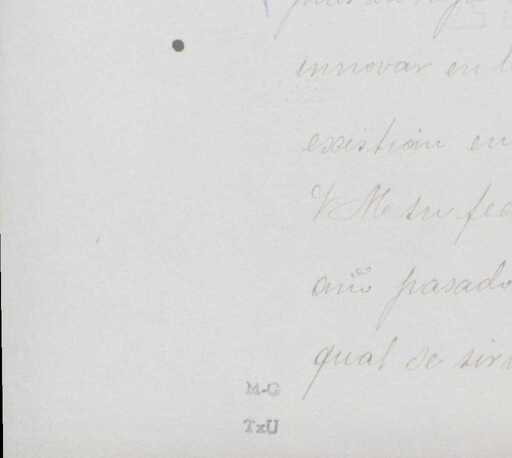 innovar en
existian en
V M e su fe
año pasado
qual se sir
M-G
TxU